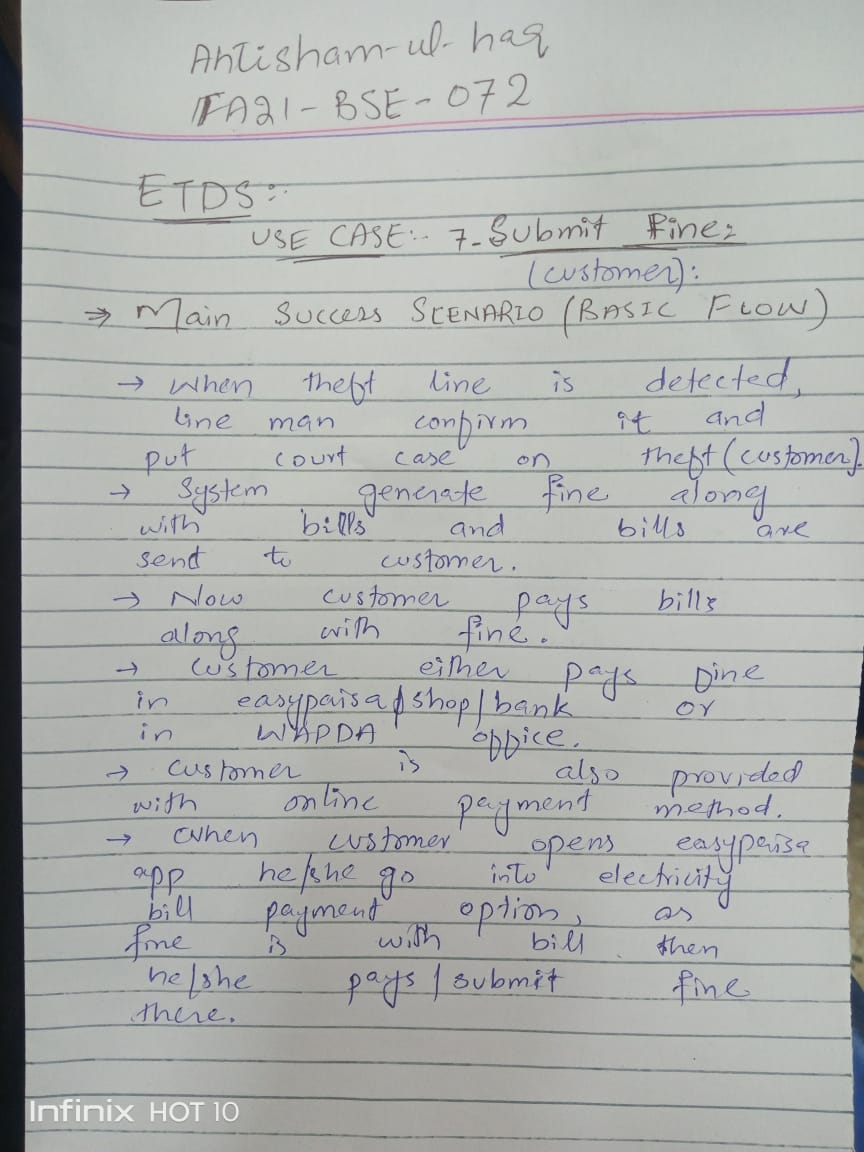 Ahtisham-ul-haq
FA21-BSE-072
ETDS:-
USE CASE:- 7-Submit Fine:
(customer):
⇒ Main SUCCESS SCENARIO (BASIC FLOW)
→ When theft line is detected,
line man confirm it and
put court case on theft (customer).
→ System generate fine along
with bills and bills are
send to customer.
→ Now customer pays bills
along with fine.
→ Customer either pays fine
in easypaisa shop/bank or
in WAPDA office.
→ Customer is also provided
with online payment method.
→ When customer opens easypaisa
app he/she go into electricity
bill payment option, as
fine is with bill then
he/she pays/submit fine
there.
Infinix HOT 10